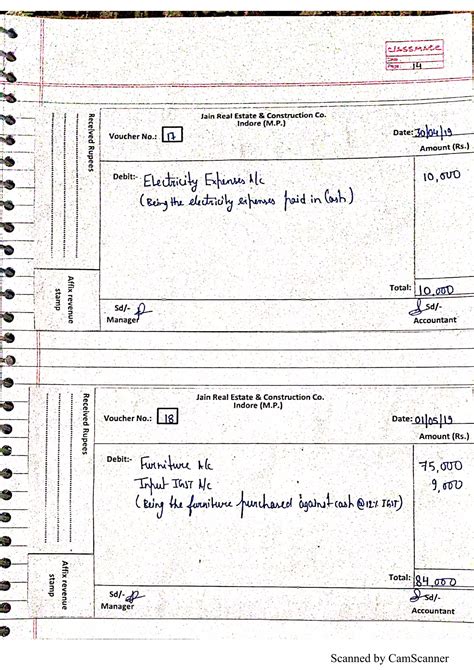 classmate
Date
Page 14
Jain Real Estate & Construction Co.
Indore (M.P.)
Voucher No.: 17
Date: 30/04/19
Amount (Rs.)
Received Rupees
Debit:- Electricity Expenses A/c 10,000
(Being the electricity expenses paid in Cash)
Total: 10,000
Affix revenue
stamp
Sd/-
Manager
Sd/-
Accountant
Jain Real Estate & Construction Co.
Indore (M.P.)
Voucher No.: 18
Date: 01/05/19
Amount (Rs.)
Received Rupees
Debit:- Furniture A/c 75,000
Input IGST A/c 9,000
(Being the furniture purchased against cash @12% IGST)
Total: 84,000
Affix revenue
stamp
Sd/-
Manager
Sd/-
Accountant
Scanned by CamScanner